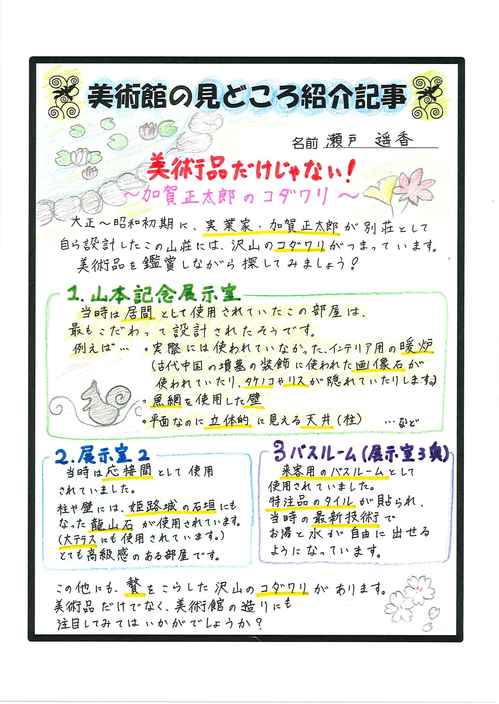 美術館の見どころ紹介記事
名前 瀬戸 遥香
美術品だけじゃない！
～加賀正太郎のコダワリ～
大正～昭和初期に、実業家・加賀正太郎が別荘として
自ら設計したこの山荘には、沢山のコダワリがつまっています。
美術品を鑑賞しながら探してみましょう？
1.山本記念展示室
当時は居間として使用されていたこの部屋は、
最もこだわって設計されたそうです。
例えば…・実際には使われていなかった、インテリア用の暖炉
(古代中国の墳墓の装飾に使われた画像石が
使われていたり、タケノコやリスが隠れていたりします。)
・魚網を使用した壁
・平面なのに立体的に見える天井(柱) …など
2.展示室2
当時は応接間として使用
されていました。
柱や壁には、姫路城の石垣にも
なった龍山石が使用されています。
(大テラスにも使用されています。)
とても高級感のある部屋です。
3バスルーム(展示室3奥)
来客用のバスルームとして
使用されていました。
特注品のタイルが貼られ、
当時の最新技術で
お湯と水が自由に出せる
ようになっています。
この他にも、贅をこらした沢山のコダワリがあります。
美術品だけでなく、美術館の造りにも
注目してみてはいかがでしょうか？